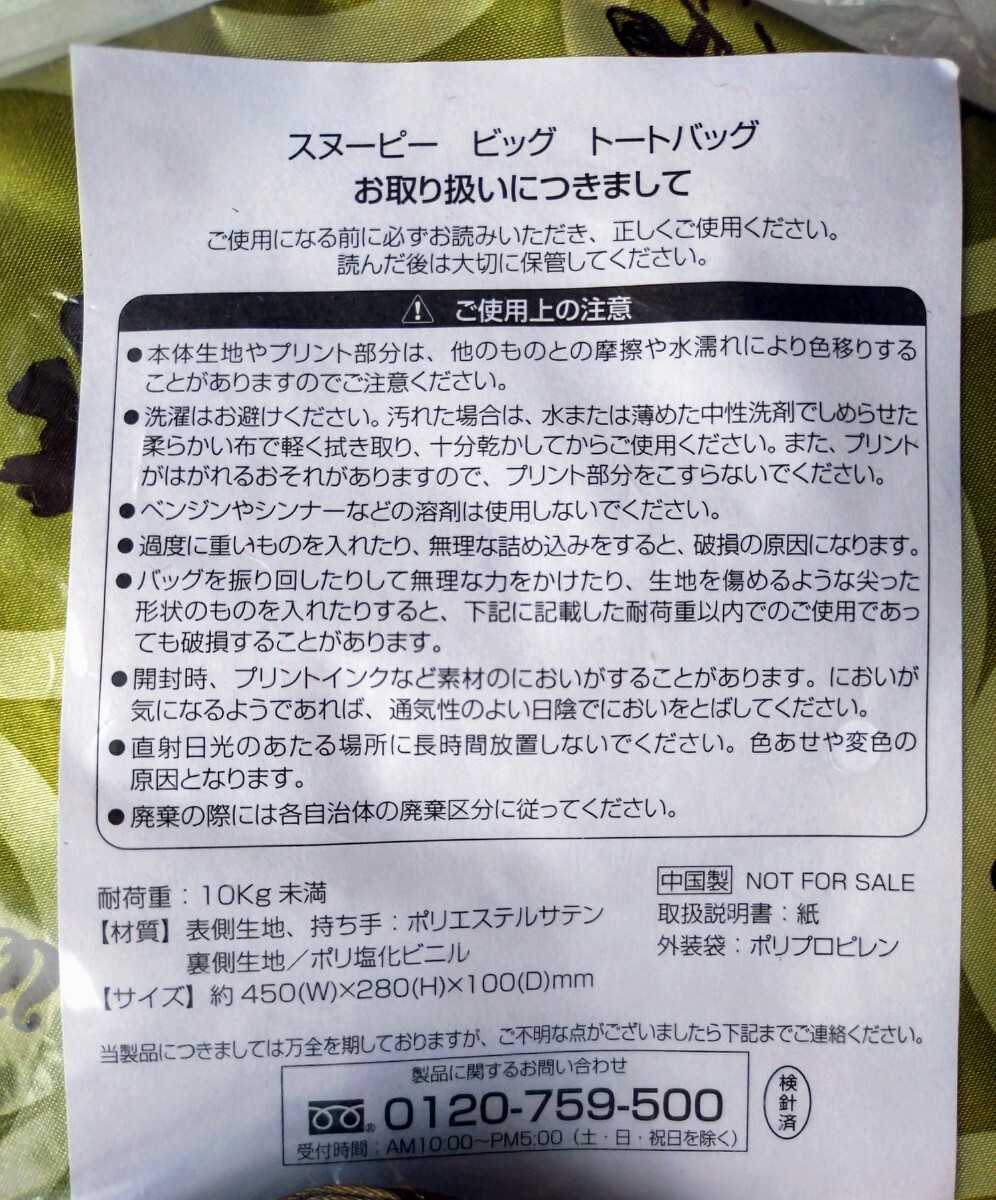 スヌーピー　ビッグ　トートバッグ
お取り扱いにつきまして
ご使用になる前に必ずお読みいただき、正しくご使用ください。
読んだ後は大切に保管してください。
⚠ ご使用上の注意
●本体生地やプリント部分は、他のものとの摩擦や水濡れにより色移りする
ことがありますのでご注意ください。
●洗濯はお避けください。汚れた場合は、水または薄めた中性洗剤でしめらせた
柔らかい布で軽く拭き取り、十分乾かしてからご使用ください。また、プリント
がはがれるおそれがありますので、プリント部分をこすらないでください。
●ベンジンやシンナーなどの溶剤は使用しないでください。
●過度に重いものを入れたり、無理な詰め込みをすると、破損の原因になります。
●バッグを振り回したりして無理な力をかけたり、生地を傷めるような尖った
形状のものを入れたりすると、下記に記載した耐荷重以内でのご使用であっ
ても破損することがあります。
●開封時、プリントインクなど素材のにおいがすることがあります。においが
気になるようであれば、通気性のよい日陰でにおいをとばしてください。
●直射日光のあたる場所に長時間放置しないでください。色あせや変色の
原因となります。
●廃棄の際には各自治体の廃棄区分に従ってください。
耐荷重：10Kg未満
【材質】表側生地、持ち手：ポリエステルサテン
裏側生地／ポリ塩化ビニル
【サイズ】約450(W)×280(H)×100(D)mm
中国製 NOT FOR SALE
取扱説明書：紙
外装袋：ポリプロピレン
当製品につきましては万全を期しておりますが、ご不明な点がございましたら下記までご連絡ください。
製品に関するお問い合わせ
0120-759-500
受付時間：AM10:00〜PM5:00（土・日・祝日を除く）
検針済